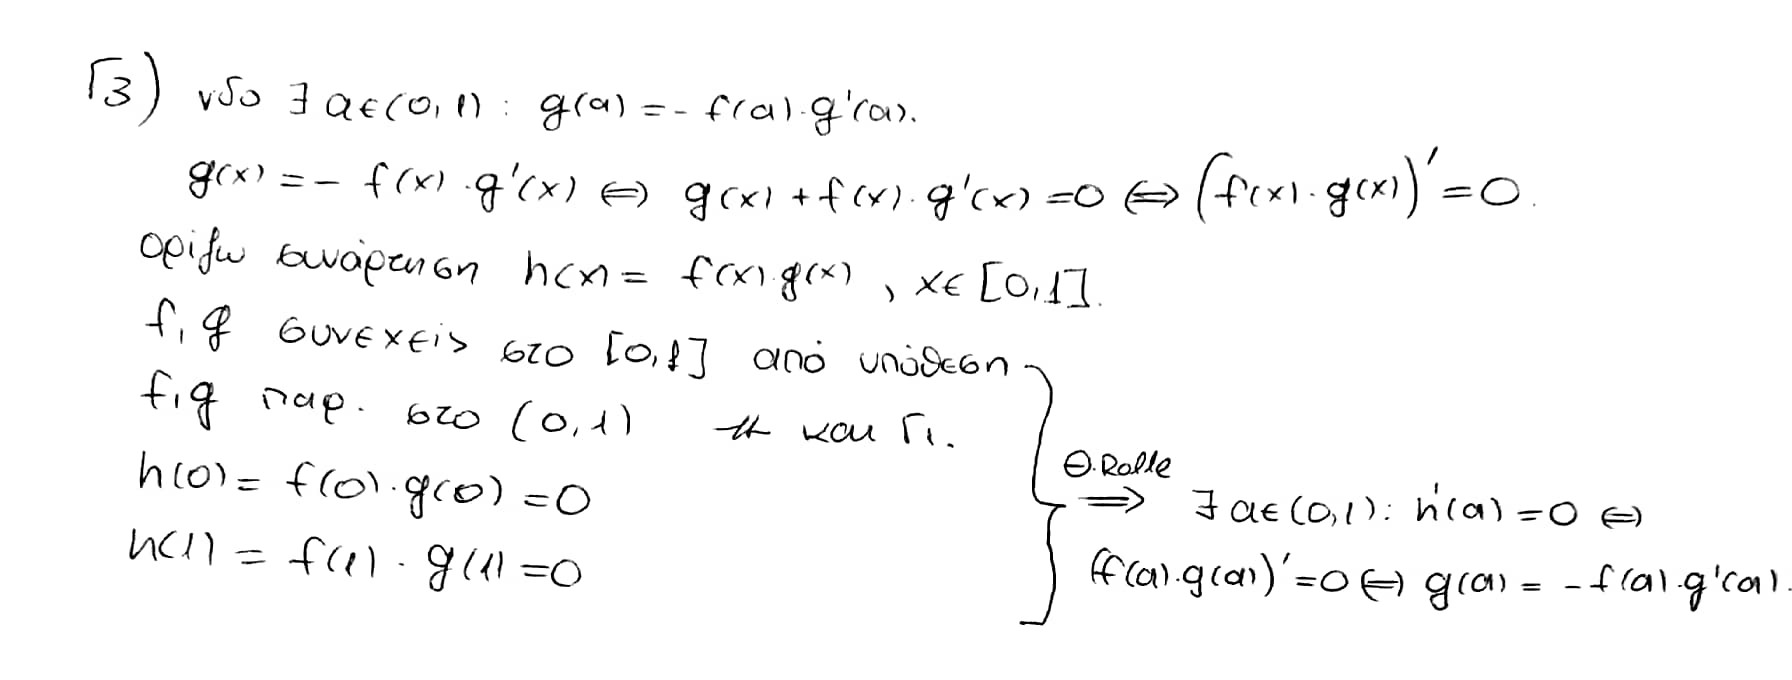 Γ3) νδο ∃ α∈(0,1): g(α) = - f(α)·g'(α).
g(x) = - f(x)·g'(x) ⇔ g(x) + f(x)·g'(x) = 0 ⇔ (f(x)·g(x))' = 0.
ορίζω συνάρτηση h(x) = f(x)·g(x) , x∈ [0,1].
f, g συνεχείς στο [0,1] από υπόθεση
f, g παρ. στο (0,1) -//- και Γ1.
h(0) = f(0)·g(0) = 0
h(1) = f(1)·g(1) = 0
Θ.Rolle
⇒ ∃ α∈(0,1): h'(α) = 0 ⇔
(f(α)·g(α))' = 0 ⇔ g(α) = - f(α)·g'(α).